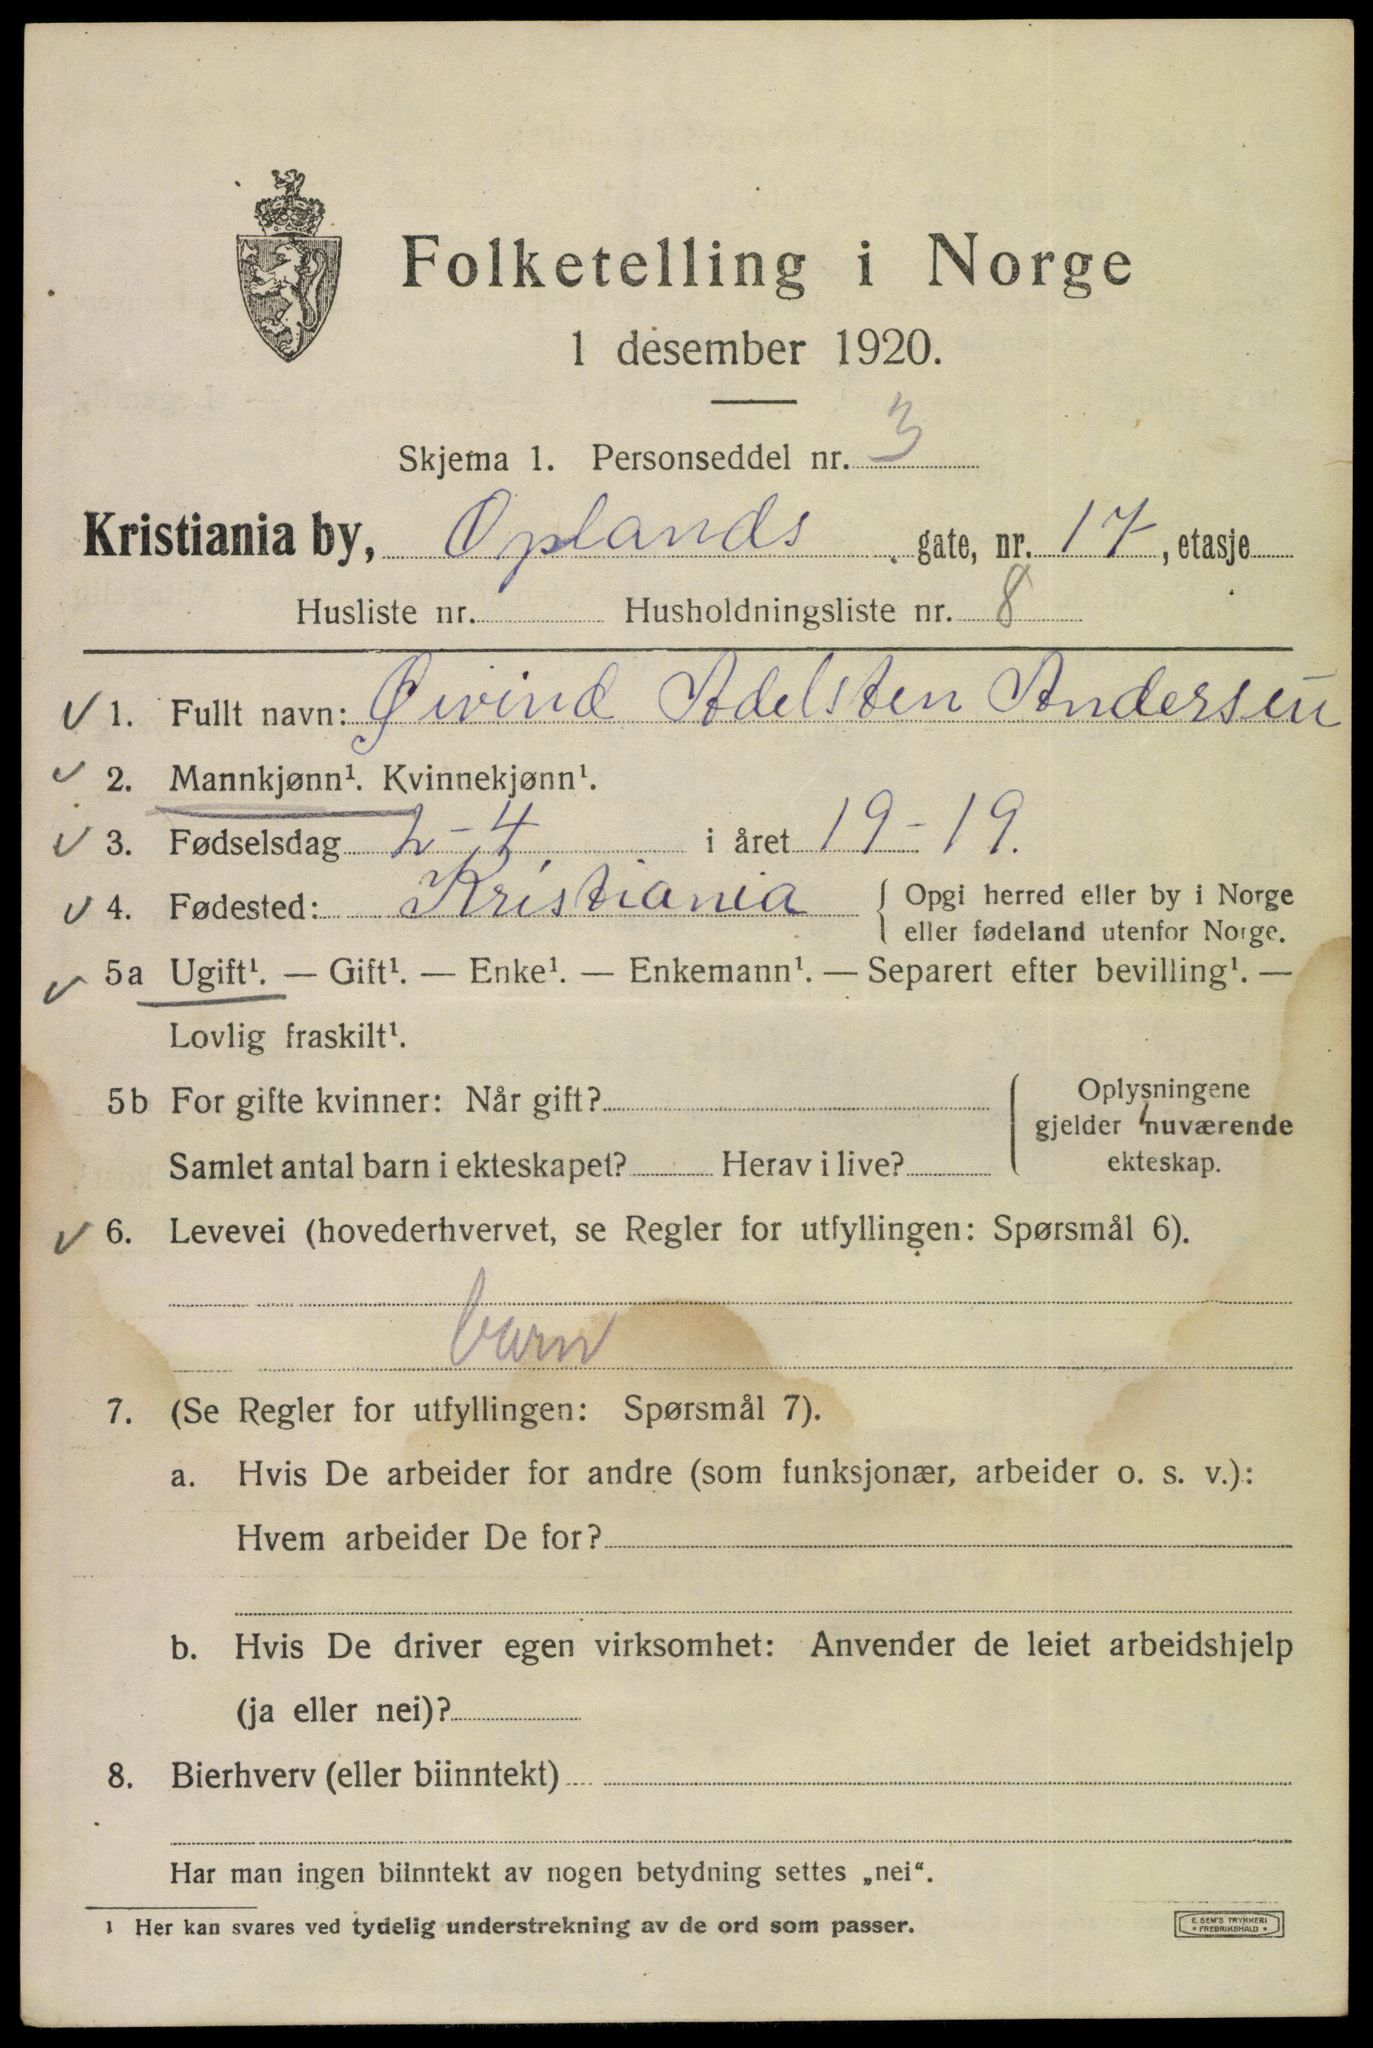 Folketelling i Norge
1 desember 1920.
Skjema 1. Personseddel nr. 3
Kristiania by, Oplands gate, nr. 17, etasje
Husliste nr. Husholdningsliste nr. 8
1. Fullt navn: Øivind Adelsten Andersen
2. Mannkjønn¹. Kvinnekjønn¹.
3. Fødselsdag 2-4 i året 19-19.
4. Fødested: Kristiania { Opgi herred eller by i Norge
eller fødeland utenfor Norge.
5a Ugift¹. — Gift¹. — Enke¹. — Enkemann¹. — Separert efter bevilling¹. —
Lovlig fraskilt¹.
5b For gifte kvinner: Når gift?
Samlet antal barn i ekteskapet? Herav i live?
Oplysningene
gjelder nuværende
ekteskap.
6. Levevei (hovederhvervet, se Regler for utfyllingen: Spørsmål 6).
barn
7. (Se Regler for utfyllingen: Spørsmål 7).
a. Hvis De arbeider for andre (som funksjonær, arbeider o. s. v.):
Hvem arbeider De for?
b. Hvis De driver egen virksomhet: Anvender de leiet arbeidshjelp
(ja eller nei)?
8. Bierhverv (eller biinntekt)
Har man ingen biinntekt av nogen betydning settes „nei“.
1 Her kan svares ved tydelig understrekning av de ord som passer.
E. SEM'S TRYKKERI
• FREDRIKSHALD •